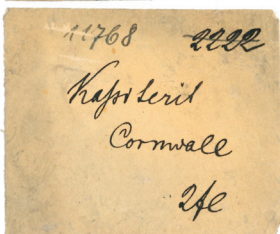 11768 2222
Kassiterit
Cornwall
2fl